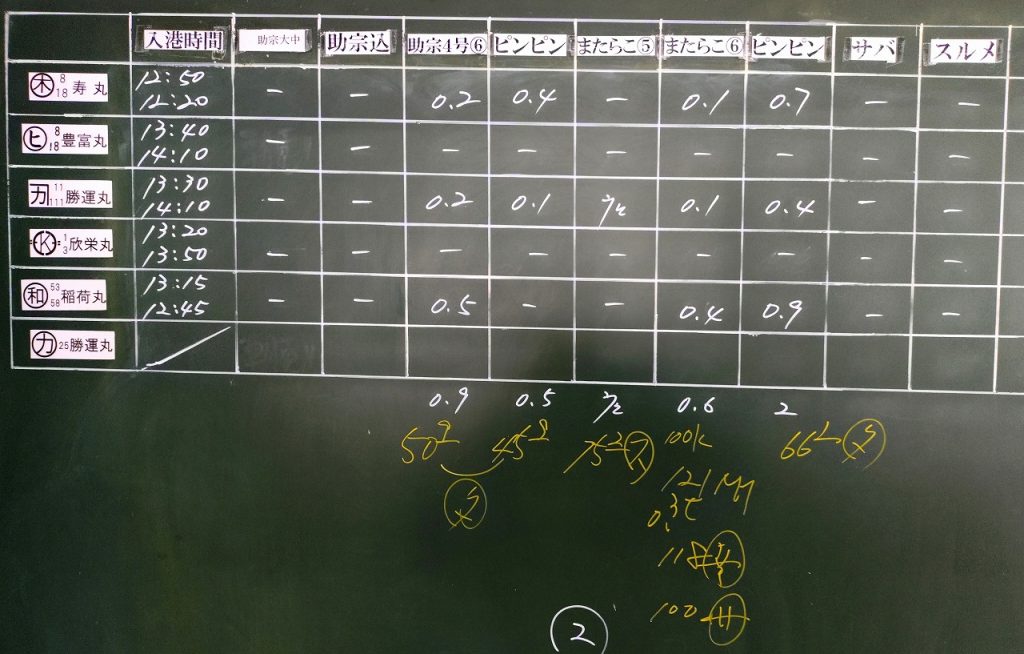 入港時間 助宗大中 助宗込 助宗4号⑥ ピンピン またらこ⑤ またらこ⑥ ピンピン サバ スルメ
㊍ 8 18 寿丸 12:50 12:20 - - 0.2 0.4 - 0.1 0.7 - -
ヒ 8 18 豊富丸 13:40 14:10 - - - - - - - - -
カ 11 111 勝運丸 13:30 14:10 - - 0.2 0.1 0.1 0.4 - -
K 1 3 欣栄丸 13:20 13:50 - - - - - - - - -
和 53 58 稲荷丸 13:15 12:45 - - 0.5 - - 0.4 0.9 - -
カ 25 勝運丸
0.9 0.5 0.6 2
50 45 75 100k 66
121
0.3t
118
100
2